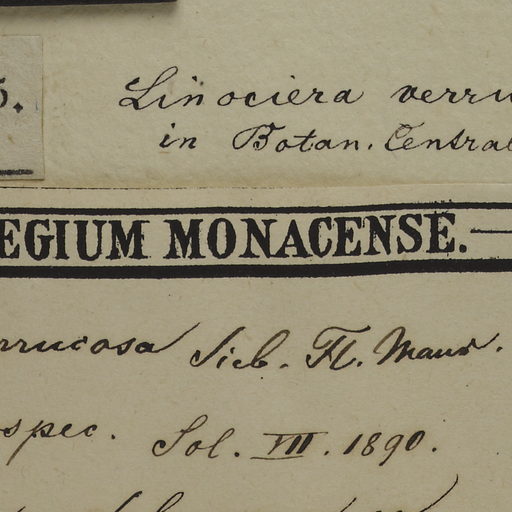 5.
Linociera verru
in Botan. Central
EGIUM MONACENSE.
rrucosa Sieb. Fl. Maur.
spec. Sol. VII. 1890.